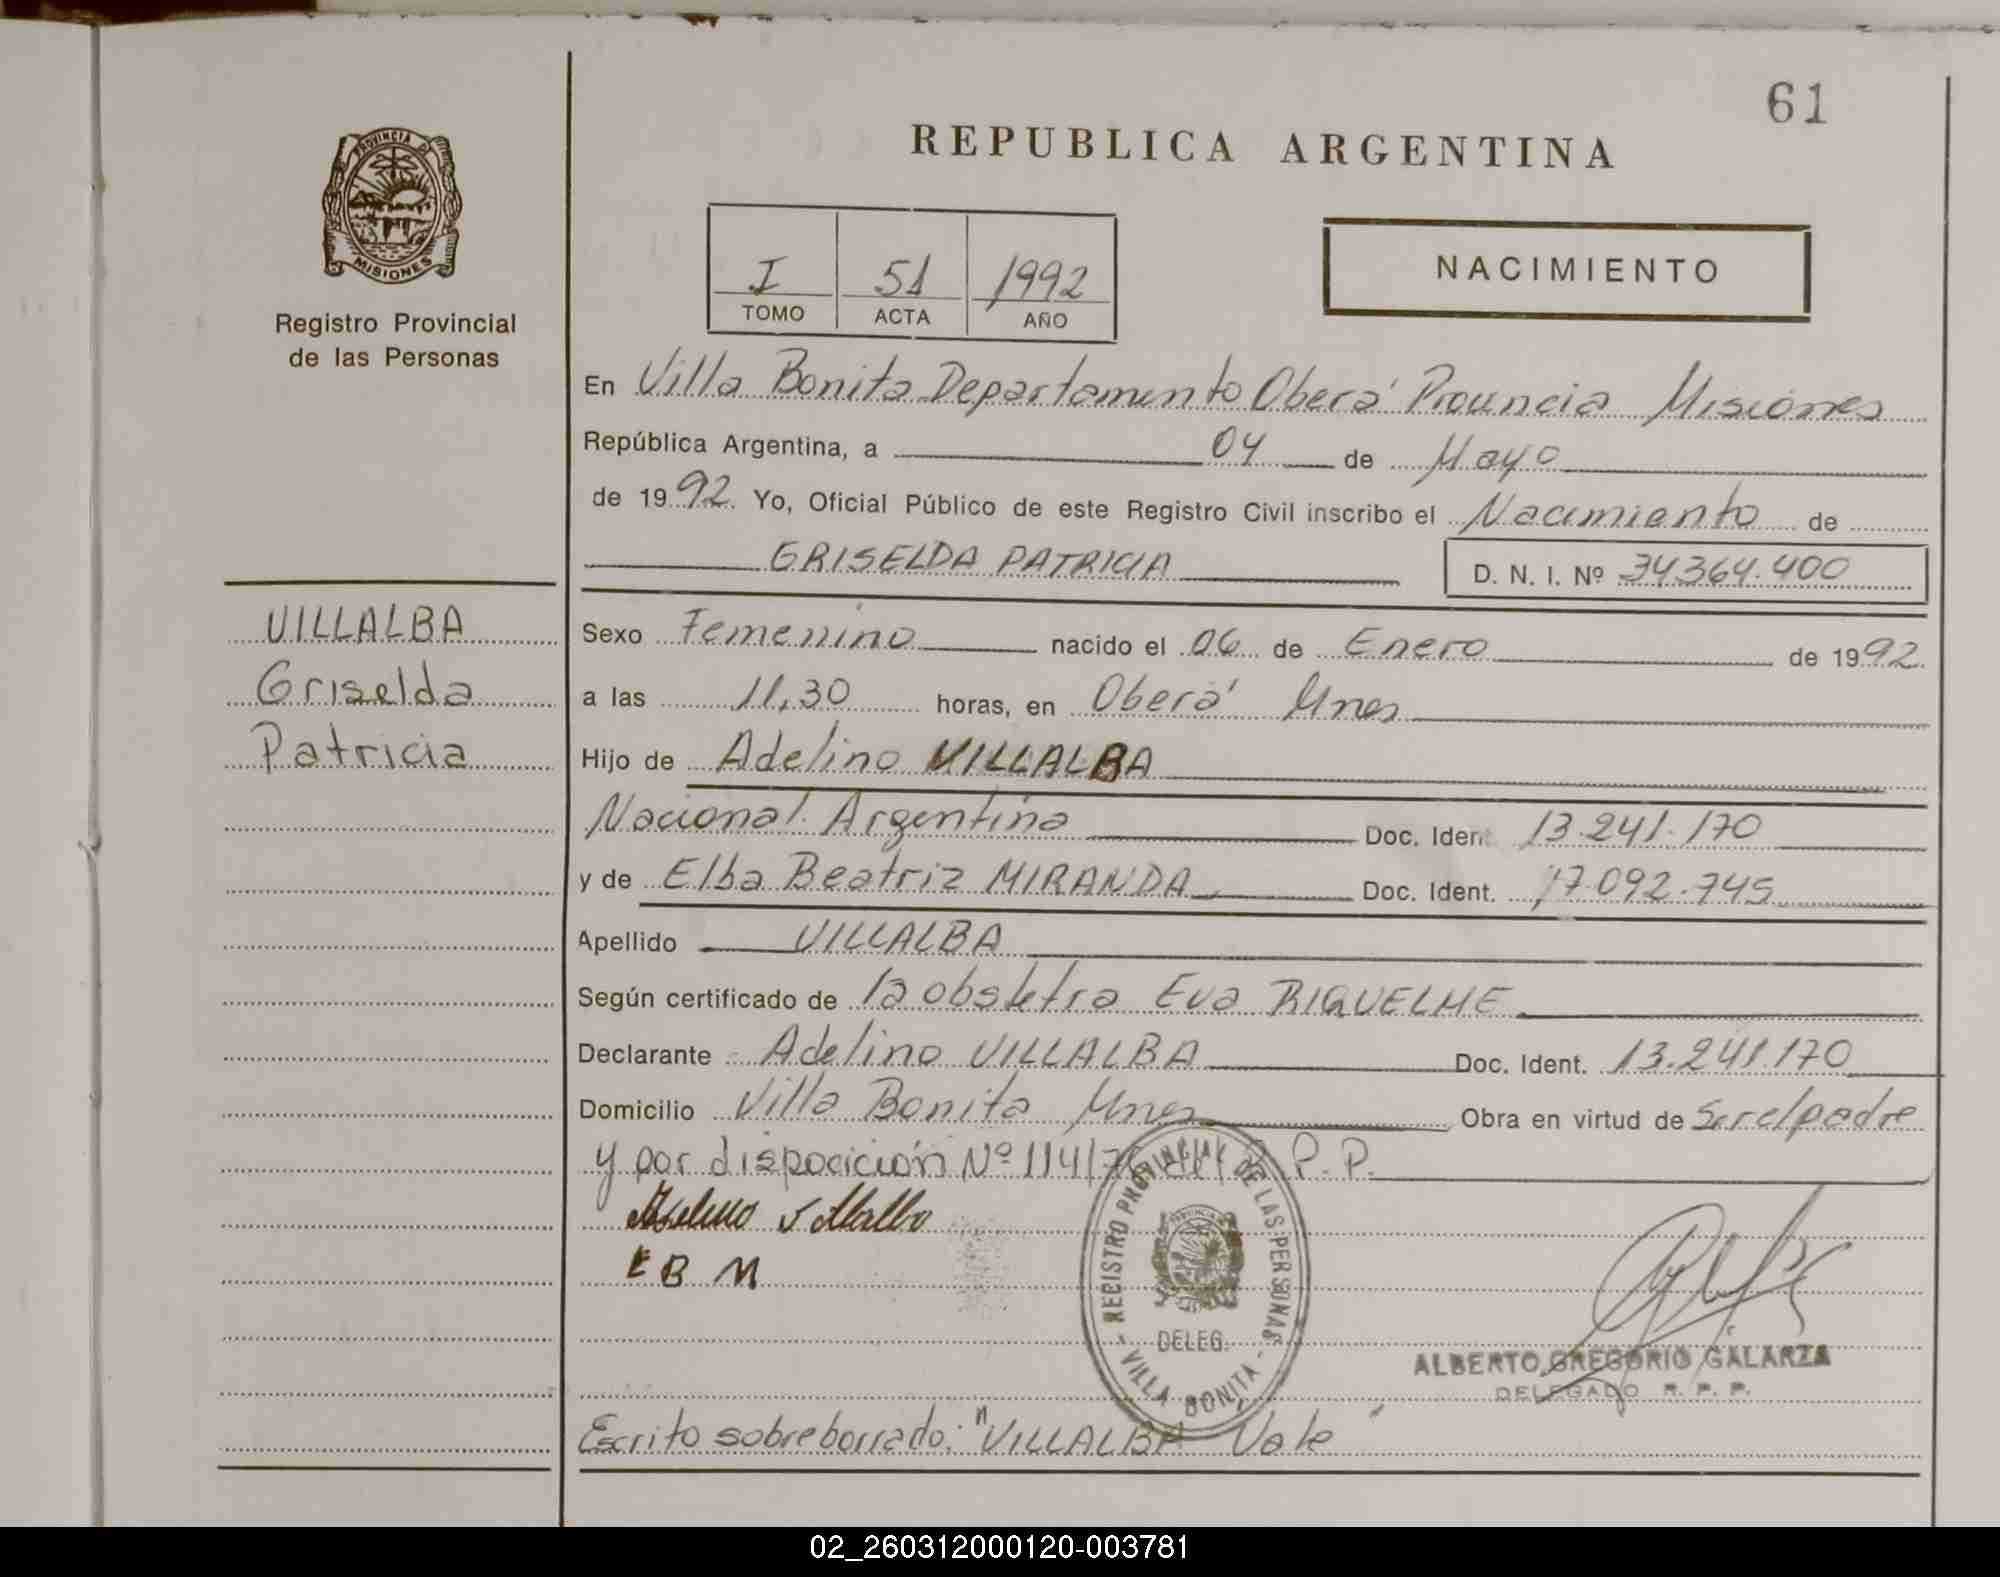 61
REPUBLICA ARGENTINA
PROVINCIA DE
MISIONES
Registro Provincial
de las Personas
NACIMIENTO
I 51 1992
TOMO ACTA AÑO
En Villa Bonita Departamento Oberá Provincia Misiones
República Argentina, a 04 de Mayo
de 1992. Yo, Oficial Público de este Registro Civil inscribo el Nacimiento de
GRISELDA PATRICIA D. N. I. Nº 34364.400
VILLALBA
Griselda
Patricia
Sexo Femenino nacido el 06 de Enero de 1992.
a las 11,30 horas, en Oberá Mnes
Hijo de Adelino VILLALBA
Nacional. Argentina Doc. Ident. 13.241.170
y de Elba Beatriz MIRANDA, Doc. Ident. 17.092.745
Apellido VILLALBA
Según certificado de la obstetra Eva RIQUELME
Declarante Adelino VILLALBA Doc. Ident. 13.241.170
Domicilio Villa Bonita Mnes Obra en virtud de Ser el padre
y por disposición Nº 114/ P.P.
Villalba
E B M
REGISTRO PROVINCIAL DE LAS PERSONAS
DELEG.
- VILLA BONITA -
ALBERTO GREGORIO GALARZA
DELEGADO R. P. P.
Escrito sobreborrado: "VILLALBA Vale"
02_260312000120-003781